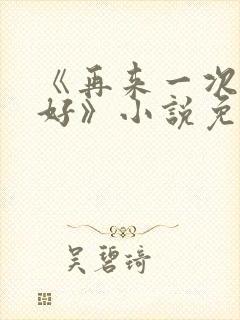 《再来一次
好》小説免
吴碧琦